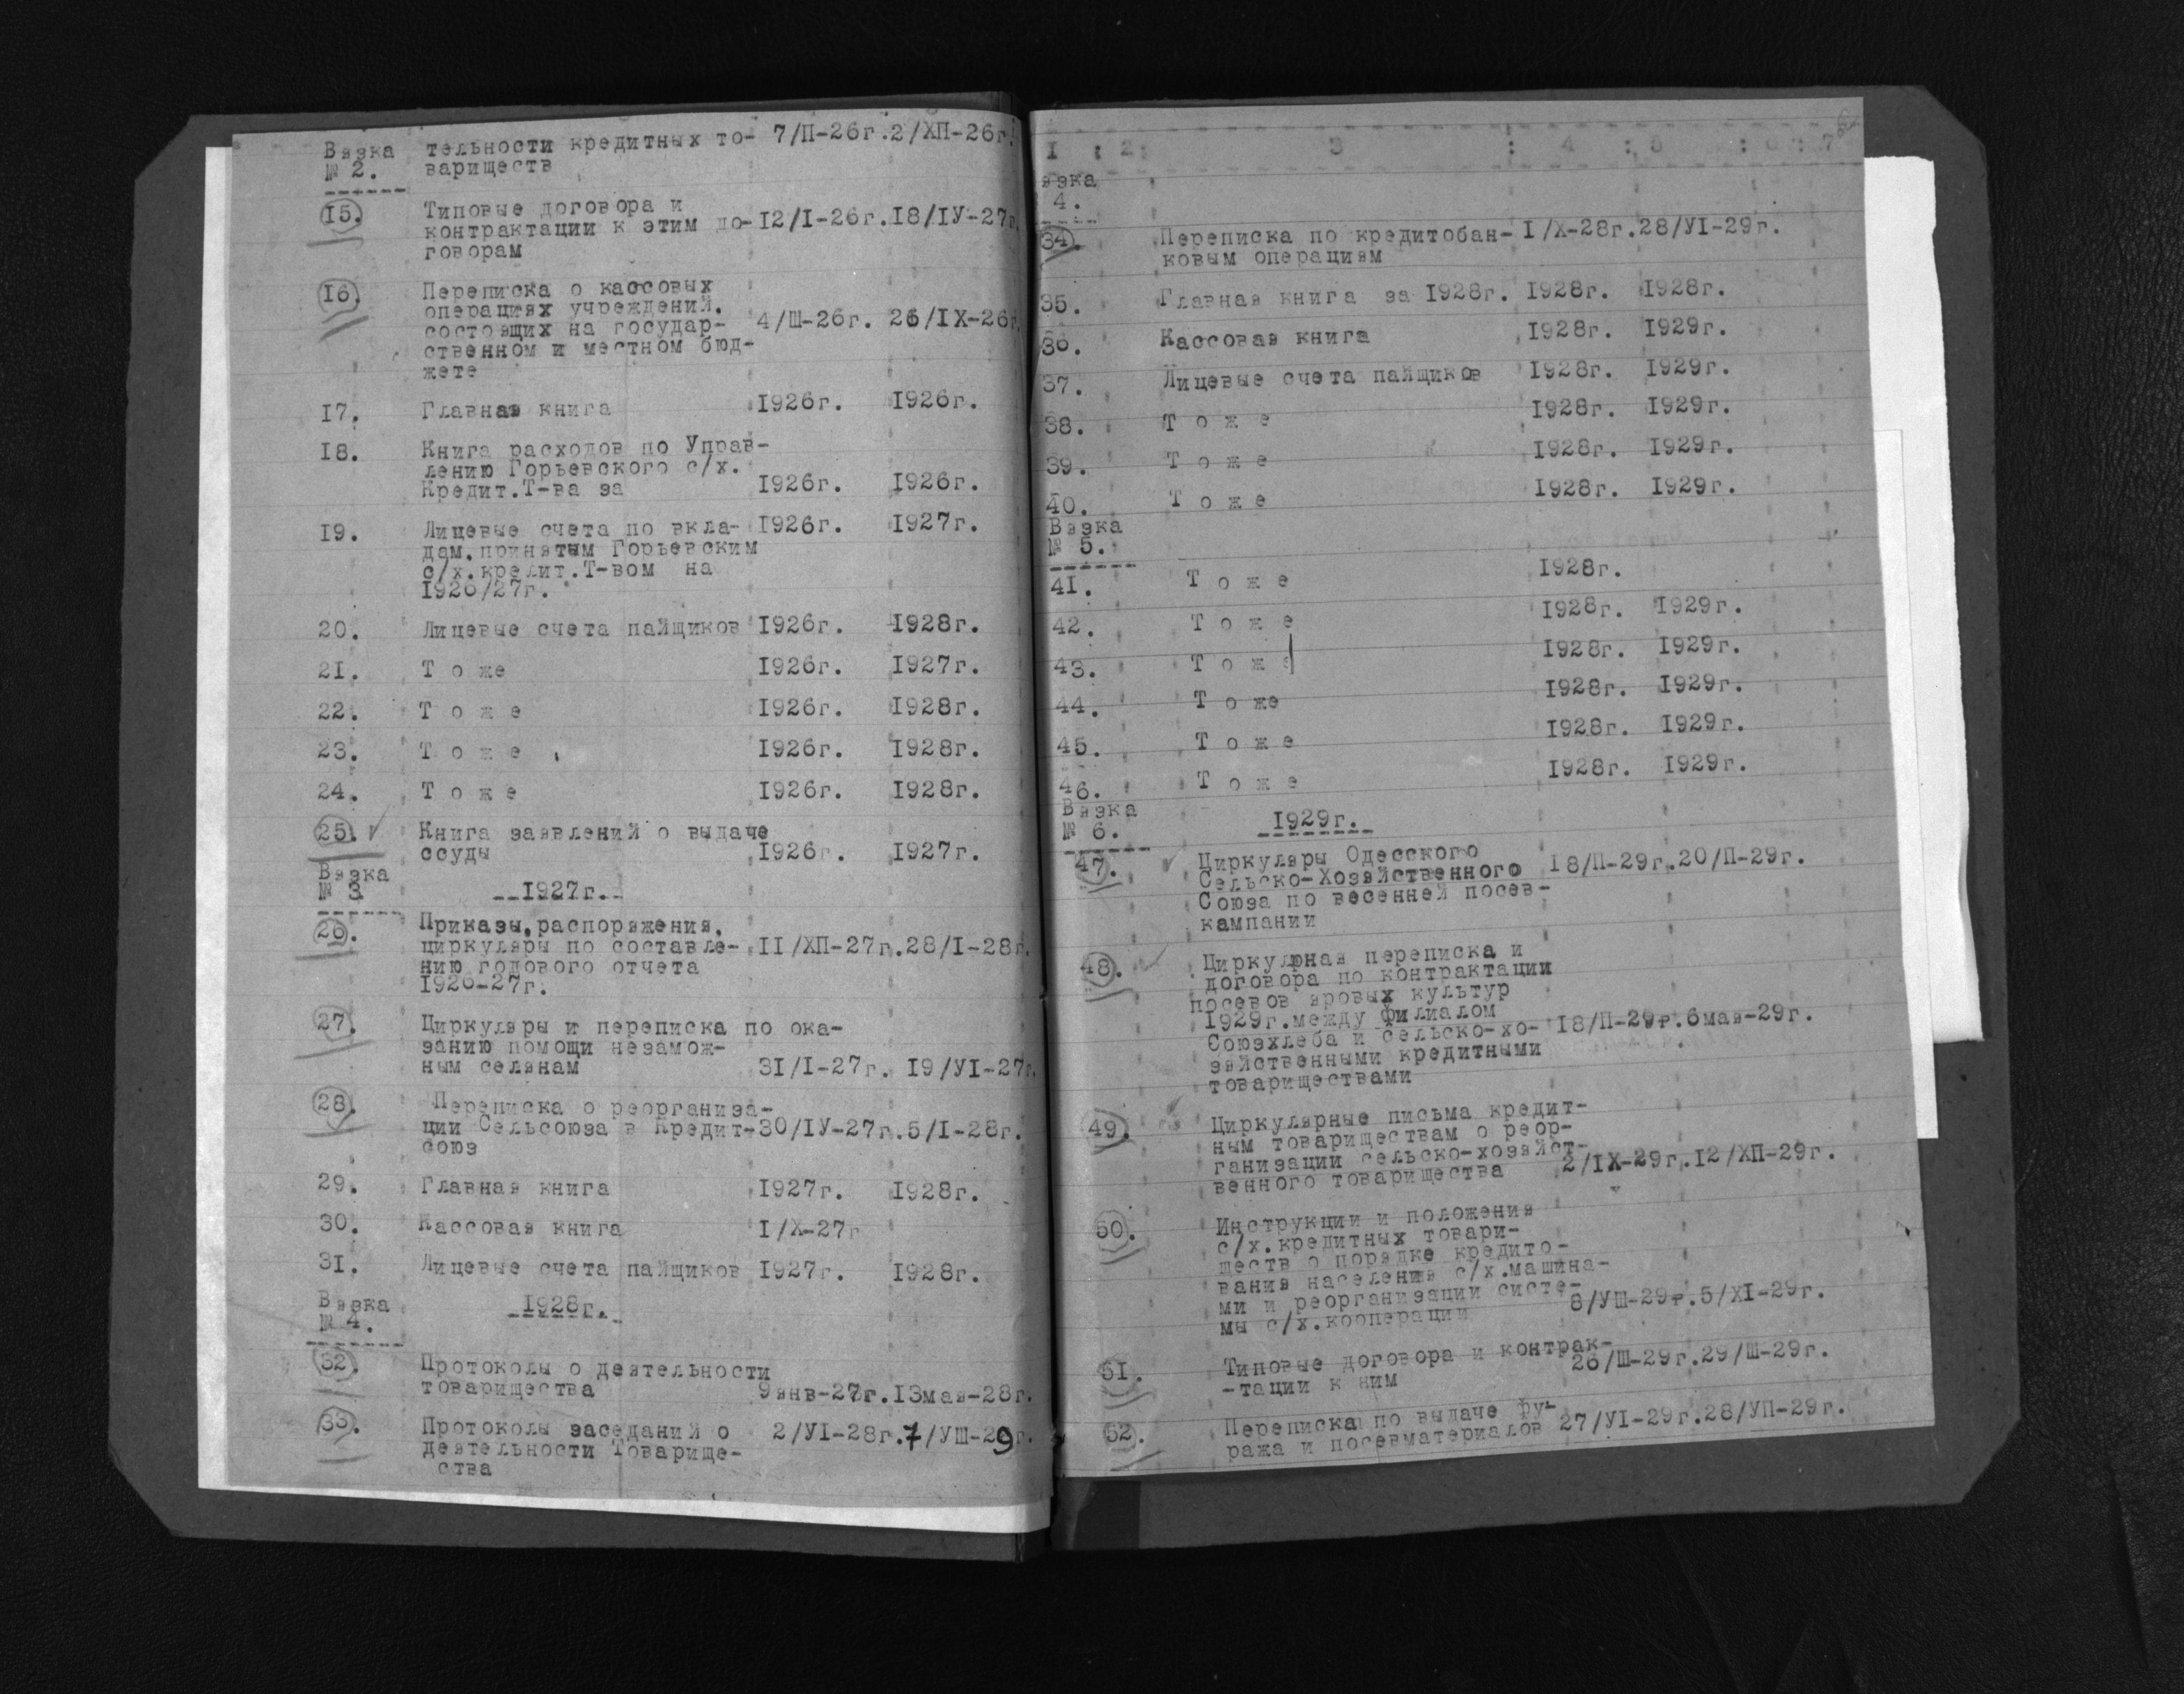 Вязка тельности кредитных то- 7/П-26г.2/ХП-26г.
№ 2. вариществ
15. Типовые договора и
контрактации к этим до- 12/I-26г.18/IУ-27г.
говорам
16. Переписка о кассовых
операциях учреждений.
состоящих на государ- 4/Ш-26г. 26/IХ-26г.
ственном и местном бюд-
жете
17. Главная книга 1926г. 1926г.
18. Книга расходов по Управ-
лению Горьевского с/х.
Кредит.Т-ва за 1926г. 1926г.
19. Лицевые счета по вкла- 1926г. 1927г.
дам.принятым Горьевским
с/х.кредит.Т-вом на
1926/27г.
20. Лицевые счета пайщиков 1926г. 1928г.
21. Т о же 1926г. 1927г.
22. Т о ж е 1926г. 1928г.
23. Т о ж е 1926г. 1928г.
24. Т о ж е 1926г. 1928г.
25. Книга заявлений о выдаче
ссуды 1926г. 1927г.
Вязка
№ 3 1927г.
26. Приказы,распоряжения,
циркуляры по составле- II/ХП-27г.28/I-28г.
нию годового отчета
1926-27г.
27. Циркуляры и переписка по ока-
занию помощи незамож-
ным селянам 31/I-27г. 19/УI-27г.
28. Переписка о реорганиза-
ции Сельсоюза в Кредит- 30/IУ-27г.5/I-28г.
союз
29. Главная книга 1927г. 1928г.
30. Кассовая книга I/Х-27г
31. Лицевые счета пайщиков 1927г. 1928г.
Вязка 1928г.
№ 4.
32. Протоколы о деятельности
товарищества 9янв-27г.13мая-28г.
33. Протоколы заседаний о 2/УI-28г.7/УШ-29г.
деятельности Товарище-
ства
I : 2: 3 : 4 : 5 : 6 : 7
язка
4.
34. Переписка по кредитобан- I/Х-28г.28/УI-29г.
ковым операциям
35. Главная книга за 1928г. 1928г. 1928г.
36. Кассовая книга 1928г. 1929г.
37. Лицевые счета пайщиков 1928г. 1929г.
38. Т о ж е 1928г. 1929г.
39. Т о ж е 1928г. 1929г.
40. Т о ж е 1928г. 1929г.
Вязка
№ 5.
41. Т о ж е 1928г.
42. Т о ж е 1928г. 1929г.
43. Т о ж е 1928г. 1929г.
44. Т о же 1928г. 1929г.
45. Т о ж е 1928г. 1929г.
46. Т о ж е 1928г. 1929г.
Вязка
№ 6. 1929г.
47. Циркуляры Одесского
Сельско-Хозяйственного 18/П-29г.20/П-29г.
Союза по весенней посев-
кампании
48. Циркулярная переписка и
договора по контрактации
посевов яровых культур
1929г.между филиалом
Союзхлеба и сельско-хо- 18/П-29г.6мая-29г.
зяйственными кредитными
товариществами
49. Циркулярные письма кредит-
ным товариществам о реор-
ганизации сельско-хозяйст-
венного товарищества 2/IХ-29г.12/ХП-29г.
50. Инструкции и положения
с/х.кредитных товари-
ществ о порядке кредито-
вания населения с/х.машина-
ми и реорганизации систе-
мы с/х.кооперации 8/УШ-29г.5/ХI-29г.
51. Типовые договора и контрак-
-тации к ним 26/Ш-29г.29/Ш-29г.
52. Переписка по выдаче фу-
ража и посевматериалов 27/УI-29г.28/УП-29г.